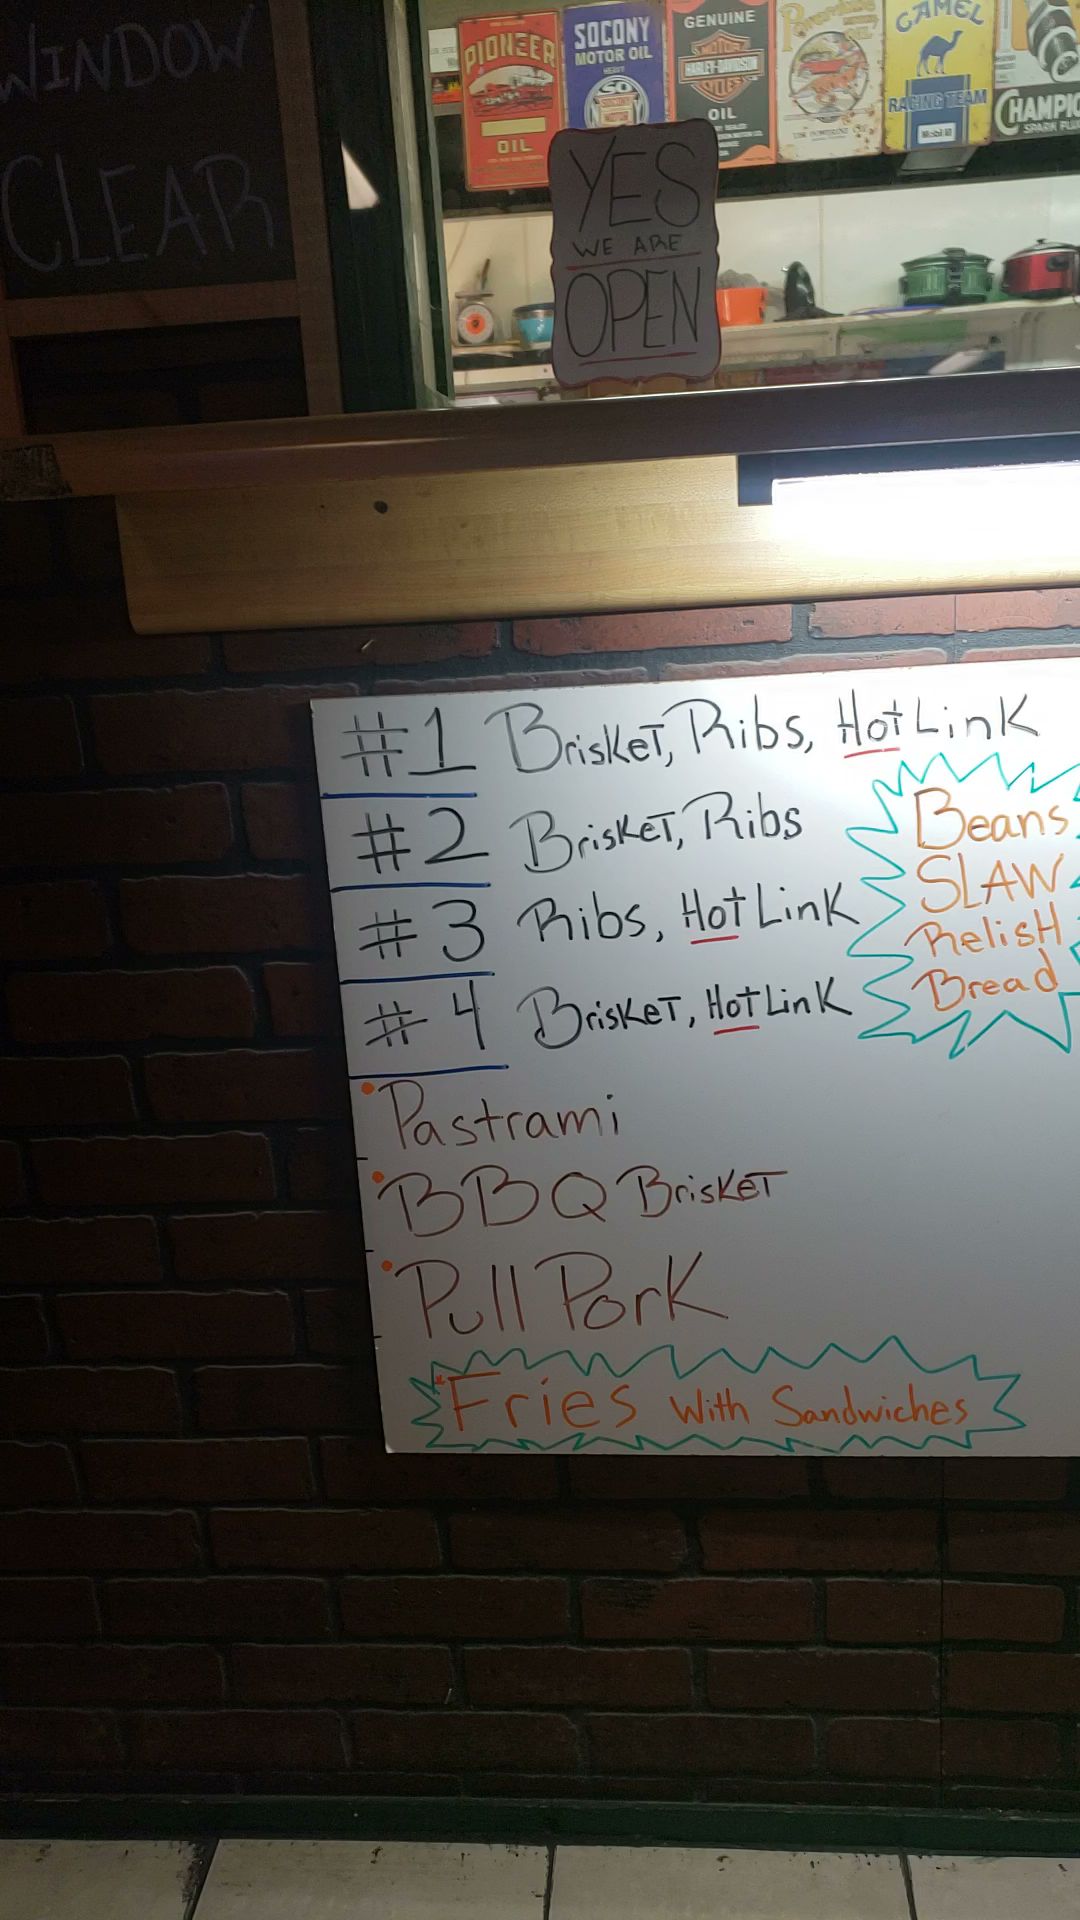 WINDOW
CLEAR
PIONEER
OIL
SOCONY
MOTOR OIL
GENUINE
MOTOR
HARLEY-DAVIDSON
OIL
CAMEL
RACING TEAM
Mobil
CHAMPIO
SPARK PLU
YES
WE ARE
OPEN
#1 BrisKeT, Ribs, HoT LinK
#2 BrisKeT, Ribs
#3 Ribs, HoT LinK
#4 BrisKeT, HoT LinK
Beans
SLAW
RelisH
Bread
•Pastrami
•BBQ BrisKeT
•Pull PorK
*Fries WiTH Sandwiches